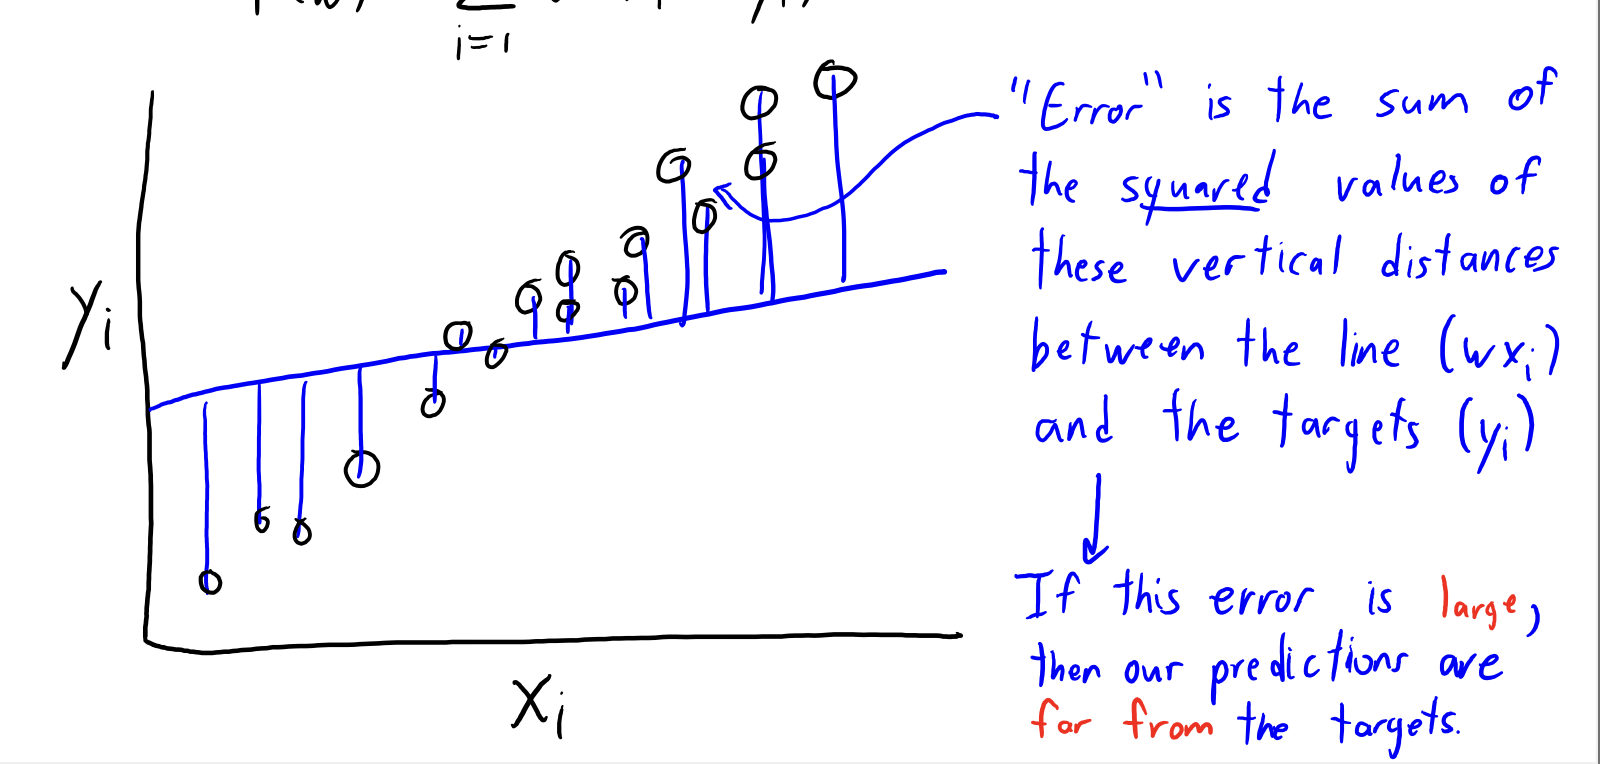 i=1
"Error" is the sum of
the squared values of
these vertical distances
between the line (wxi)
and the targets (yi)
yi
If this error is large,
then our predictions are
far from the targets.
xi